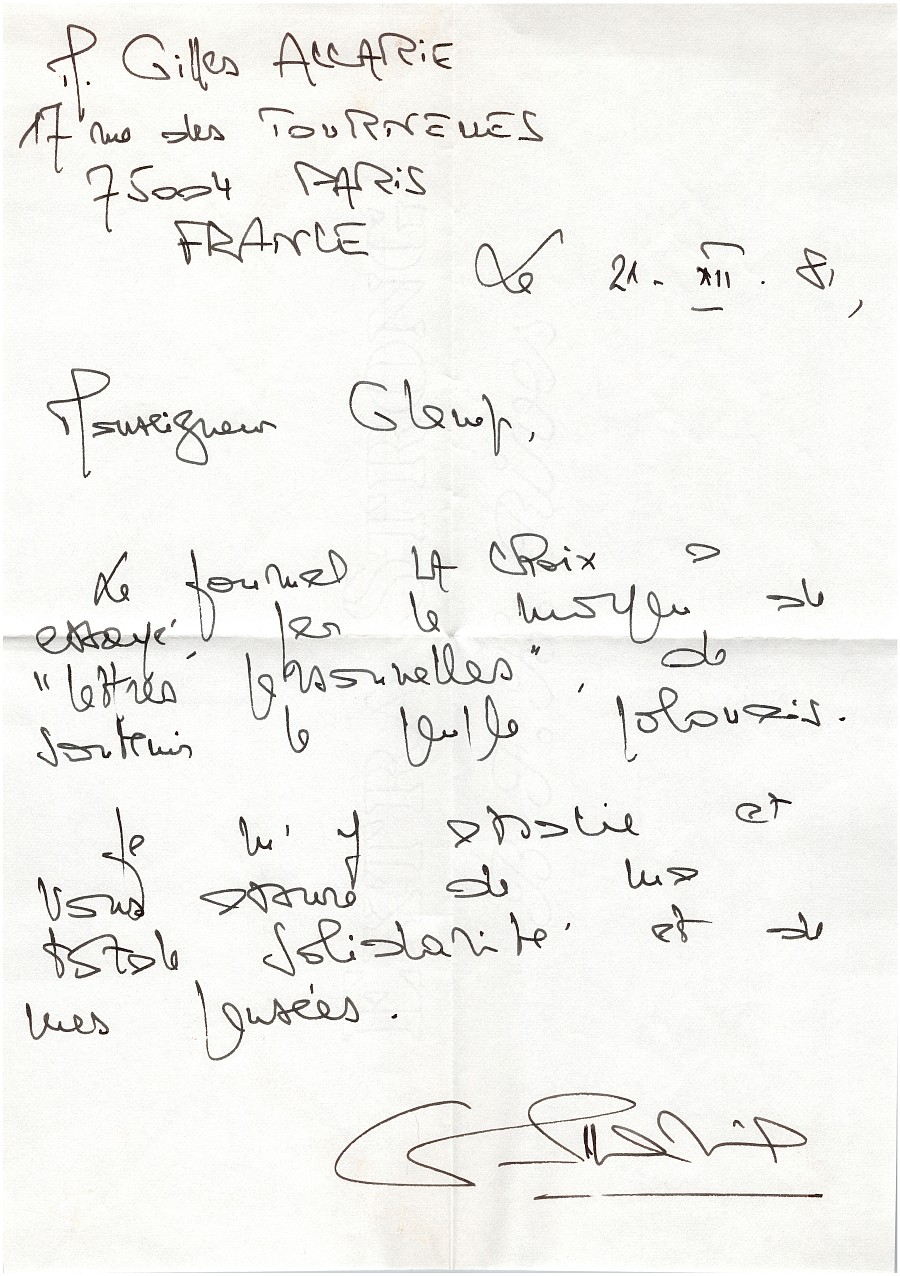 M. Gilles ALLARIE
17 rue des TOURNELLES
75004 PARIS
FRANCE
Le 21. XII. 81,
Monseigneur Glemp,
Le journal LA CROIX a
essayé, par le moyen de
"lettres personnelles", de
soutenir le peuple polonais.
Je m'y associe et
vous assure de ma
totale solidarité et de
mes pensées.